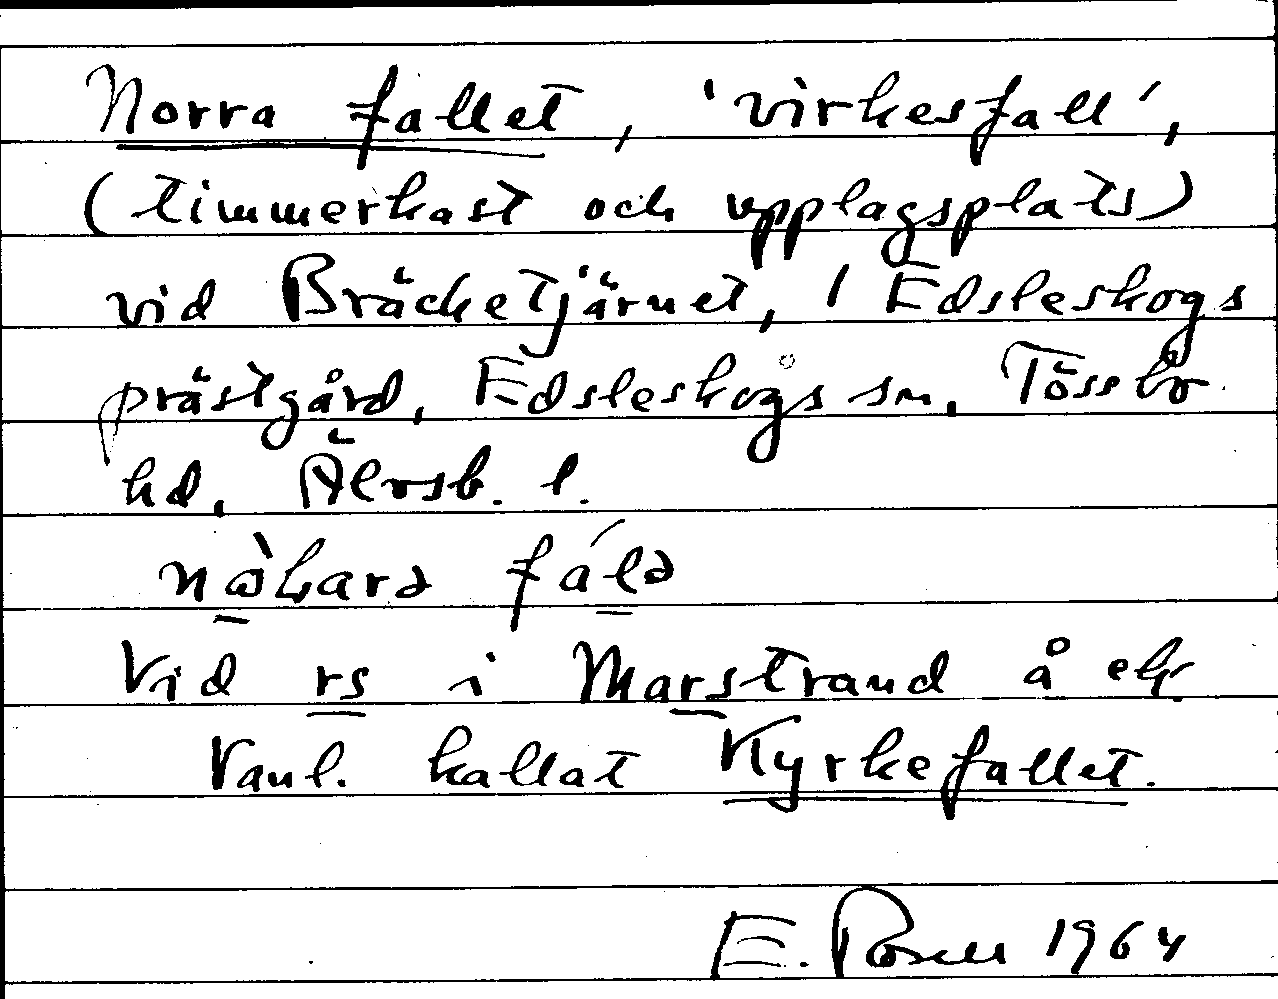 Norra fallet, 'virkesfall',
(timmerkast och upplagsplats)
vid Bräcketjärnet, / Edsleskogs
prästgård, Edsleskogs sn. Tössbo
hd, Älvsb. l.
Vid rs i Marstrand å
Vanl. kallat Kyrkefallet.
E. 1964